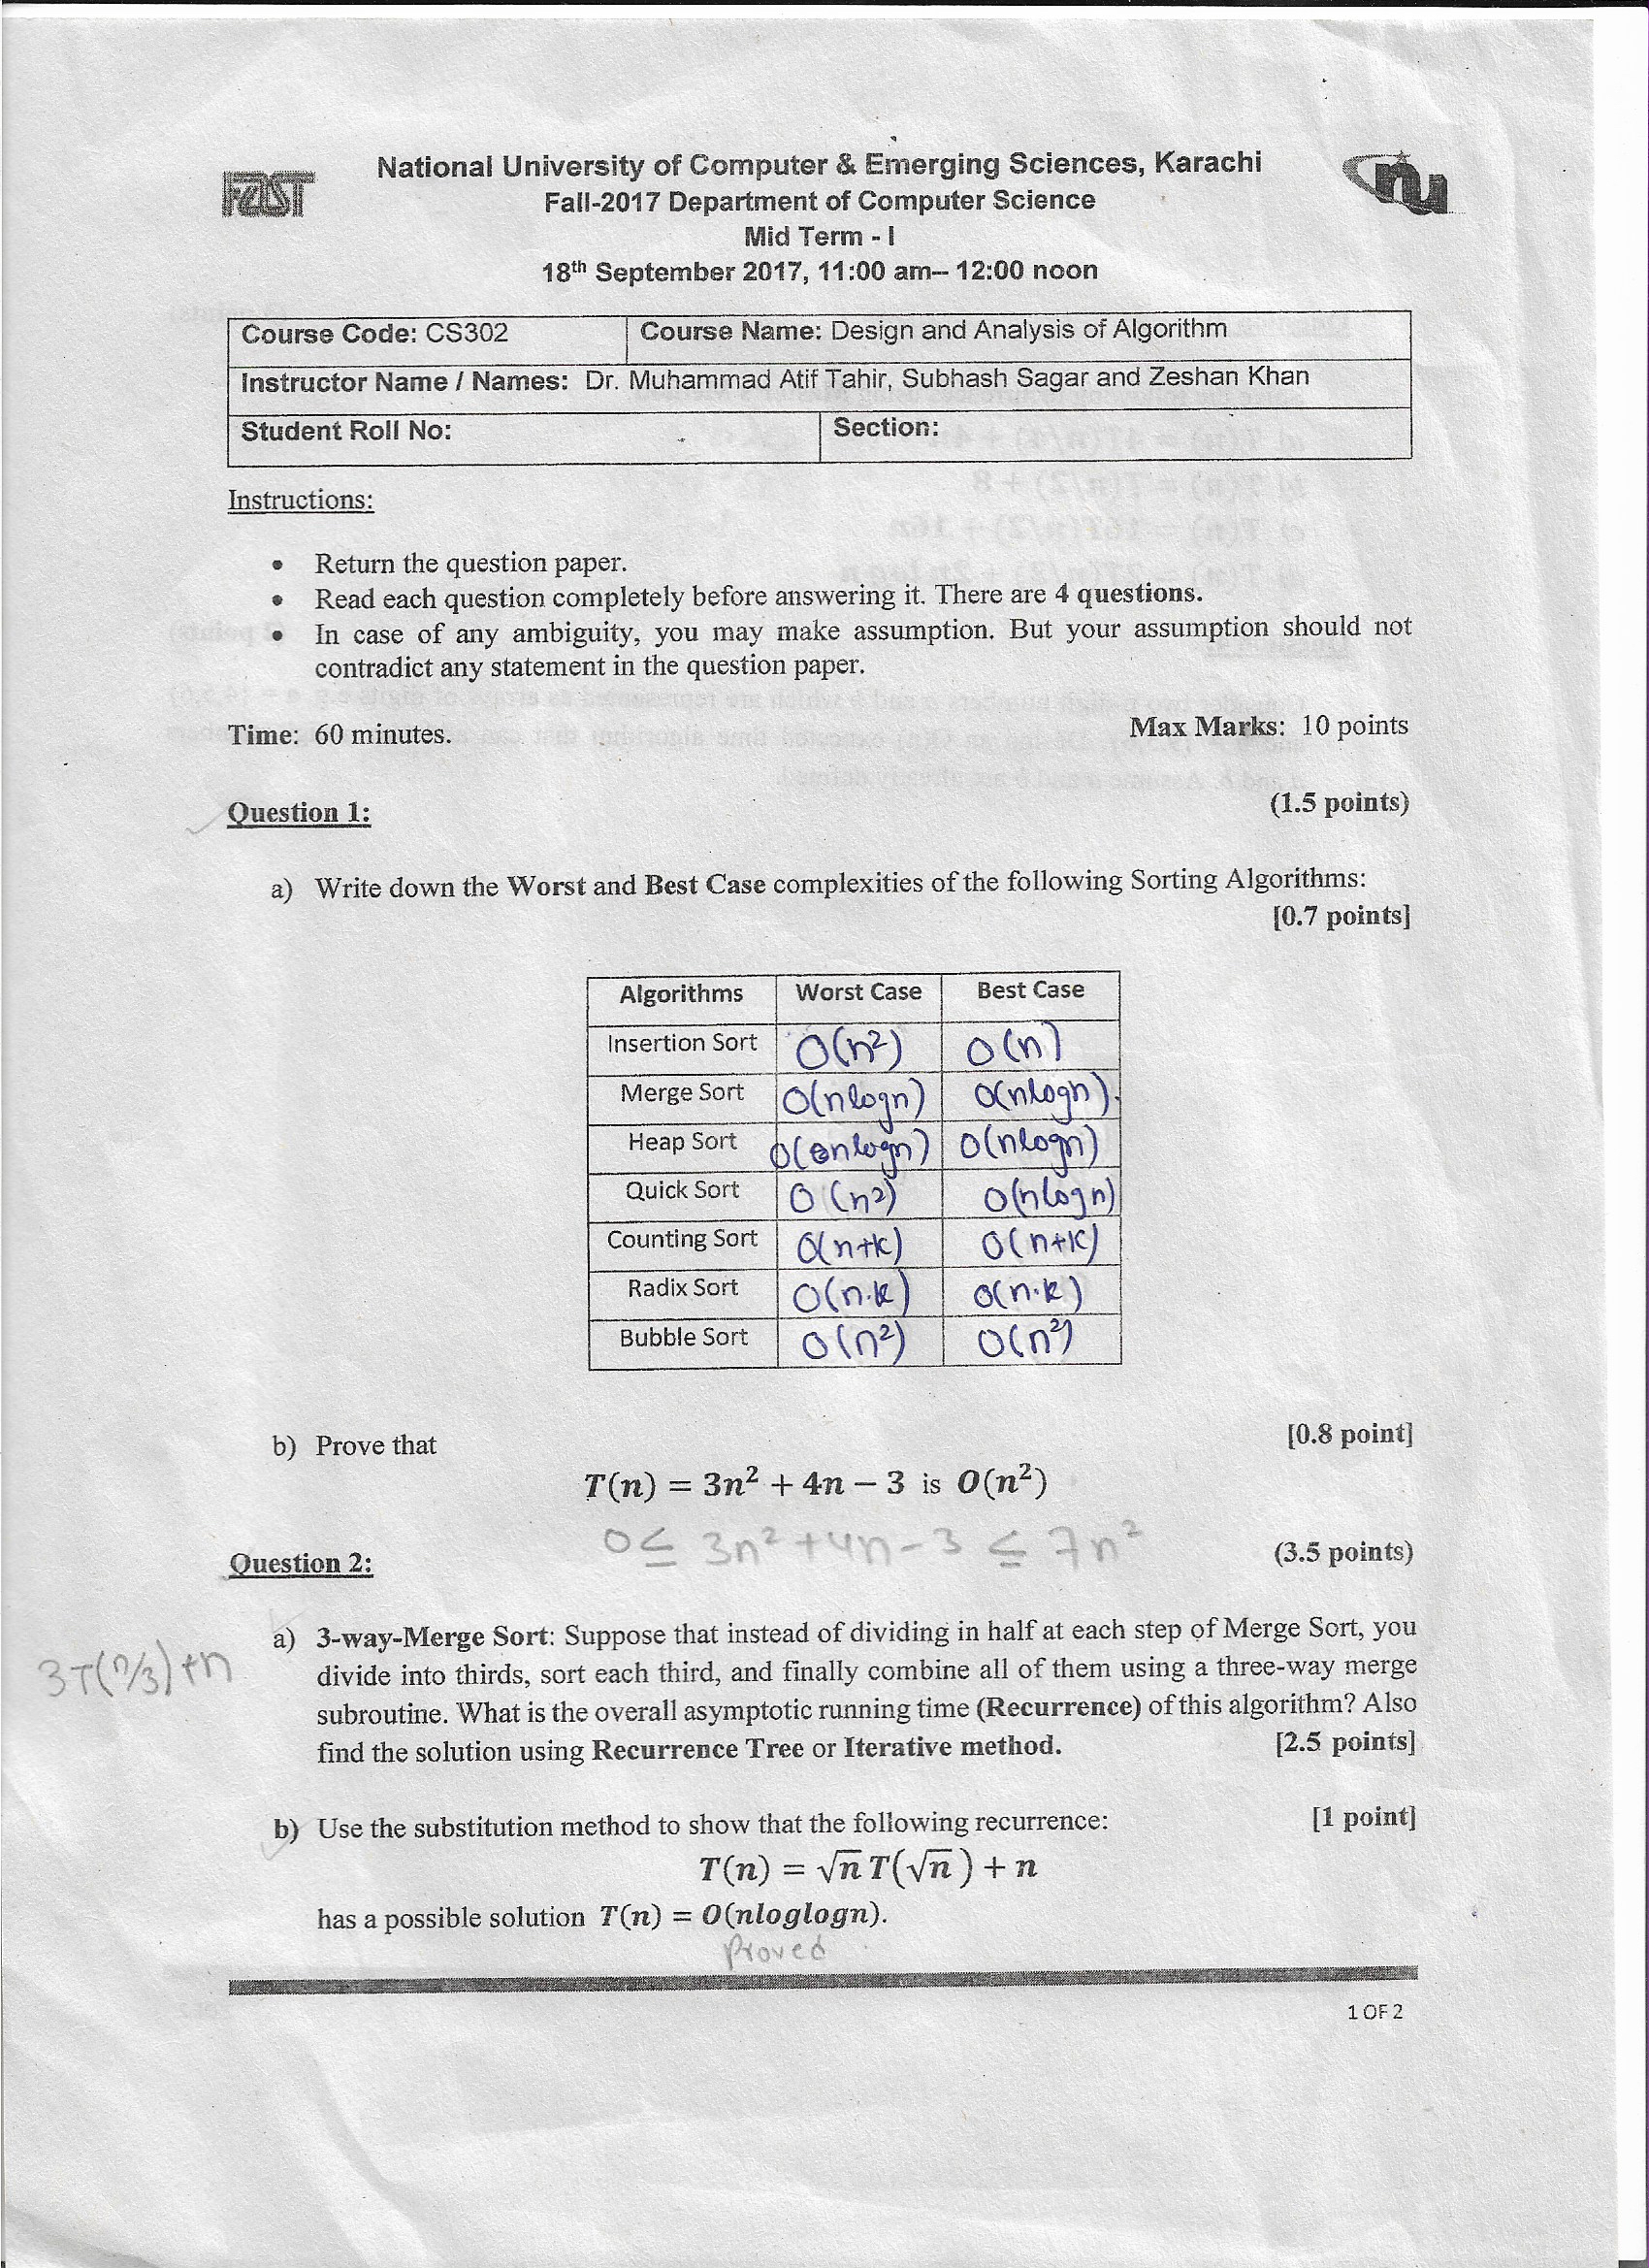 FAST
National University of Computer & Emerging Sciences, Karachi
nu
Fall-2017 Department of Computer Science
Mid Term - I
18th September 2017, 11:00 am-- 12:00 noon
Course Code: CS302 Course Name: Design and Analysis of Algorithm
Instructor Name / Names: Dr. Muhammad Atif Tahir, Subhash Sagar and Zeshan Khan
Student Roll No: Section:
Instructions:
• Return the question paper.
• Read each question completely before answering it. There are 4 questions.
• In case of any ambiguity, you may make assumption. But your assumption should not
contradict any statement in the question paper.
Time: 60 minutes. Max Marks: 10 points
Question 1: (1.5 points)
a) Write down the Worst and Best Case complexities of the following Sorting Algorithms:
[0.7 points]
Algorithms Worst Case Best Case
Insertion Sort O(n²) O(n)
Merge Sort O(nlogn) O(nlogn).
Heap Sort O(nlogn) O(nlogn)
Quick Sort O(n²) O(nlogn)
Counting Sort O(n+k) O(n+k)
Radix Sort O(n·k) O(n·k)
Bubble Sort O(n²) O(n²)
b) Prove that [0.8 point]
T(n) = 3n² + 4n − 3 is O(n²)
0 ≤ 3n²+4n-3 ≤ 7n²
Question 2: (3.5 points)
a) 3-way-Merge Sort: Suppose that instead of dividing in half at each step of Merge Sort, you
3T(n/3)+n
divide into thirds, sort each third, and finally combine all of them using a three-way merge
subroutine. What is the overall asymptotic running time (Recurrence) of this algorithm? Also
find the solution using Recurrence Tree or Iterative method. [2.5 points]
b) Use the substitution method to show that the following recurrence: [1 point]
T(n) = √n T(√n) + n
has a possible solution T(n) = O(nloglogn).
Proved
1 OF 2